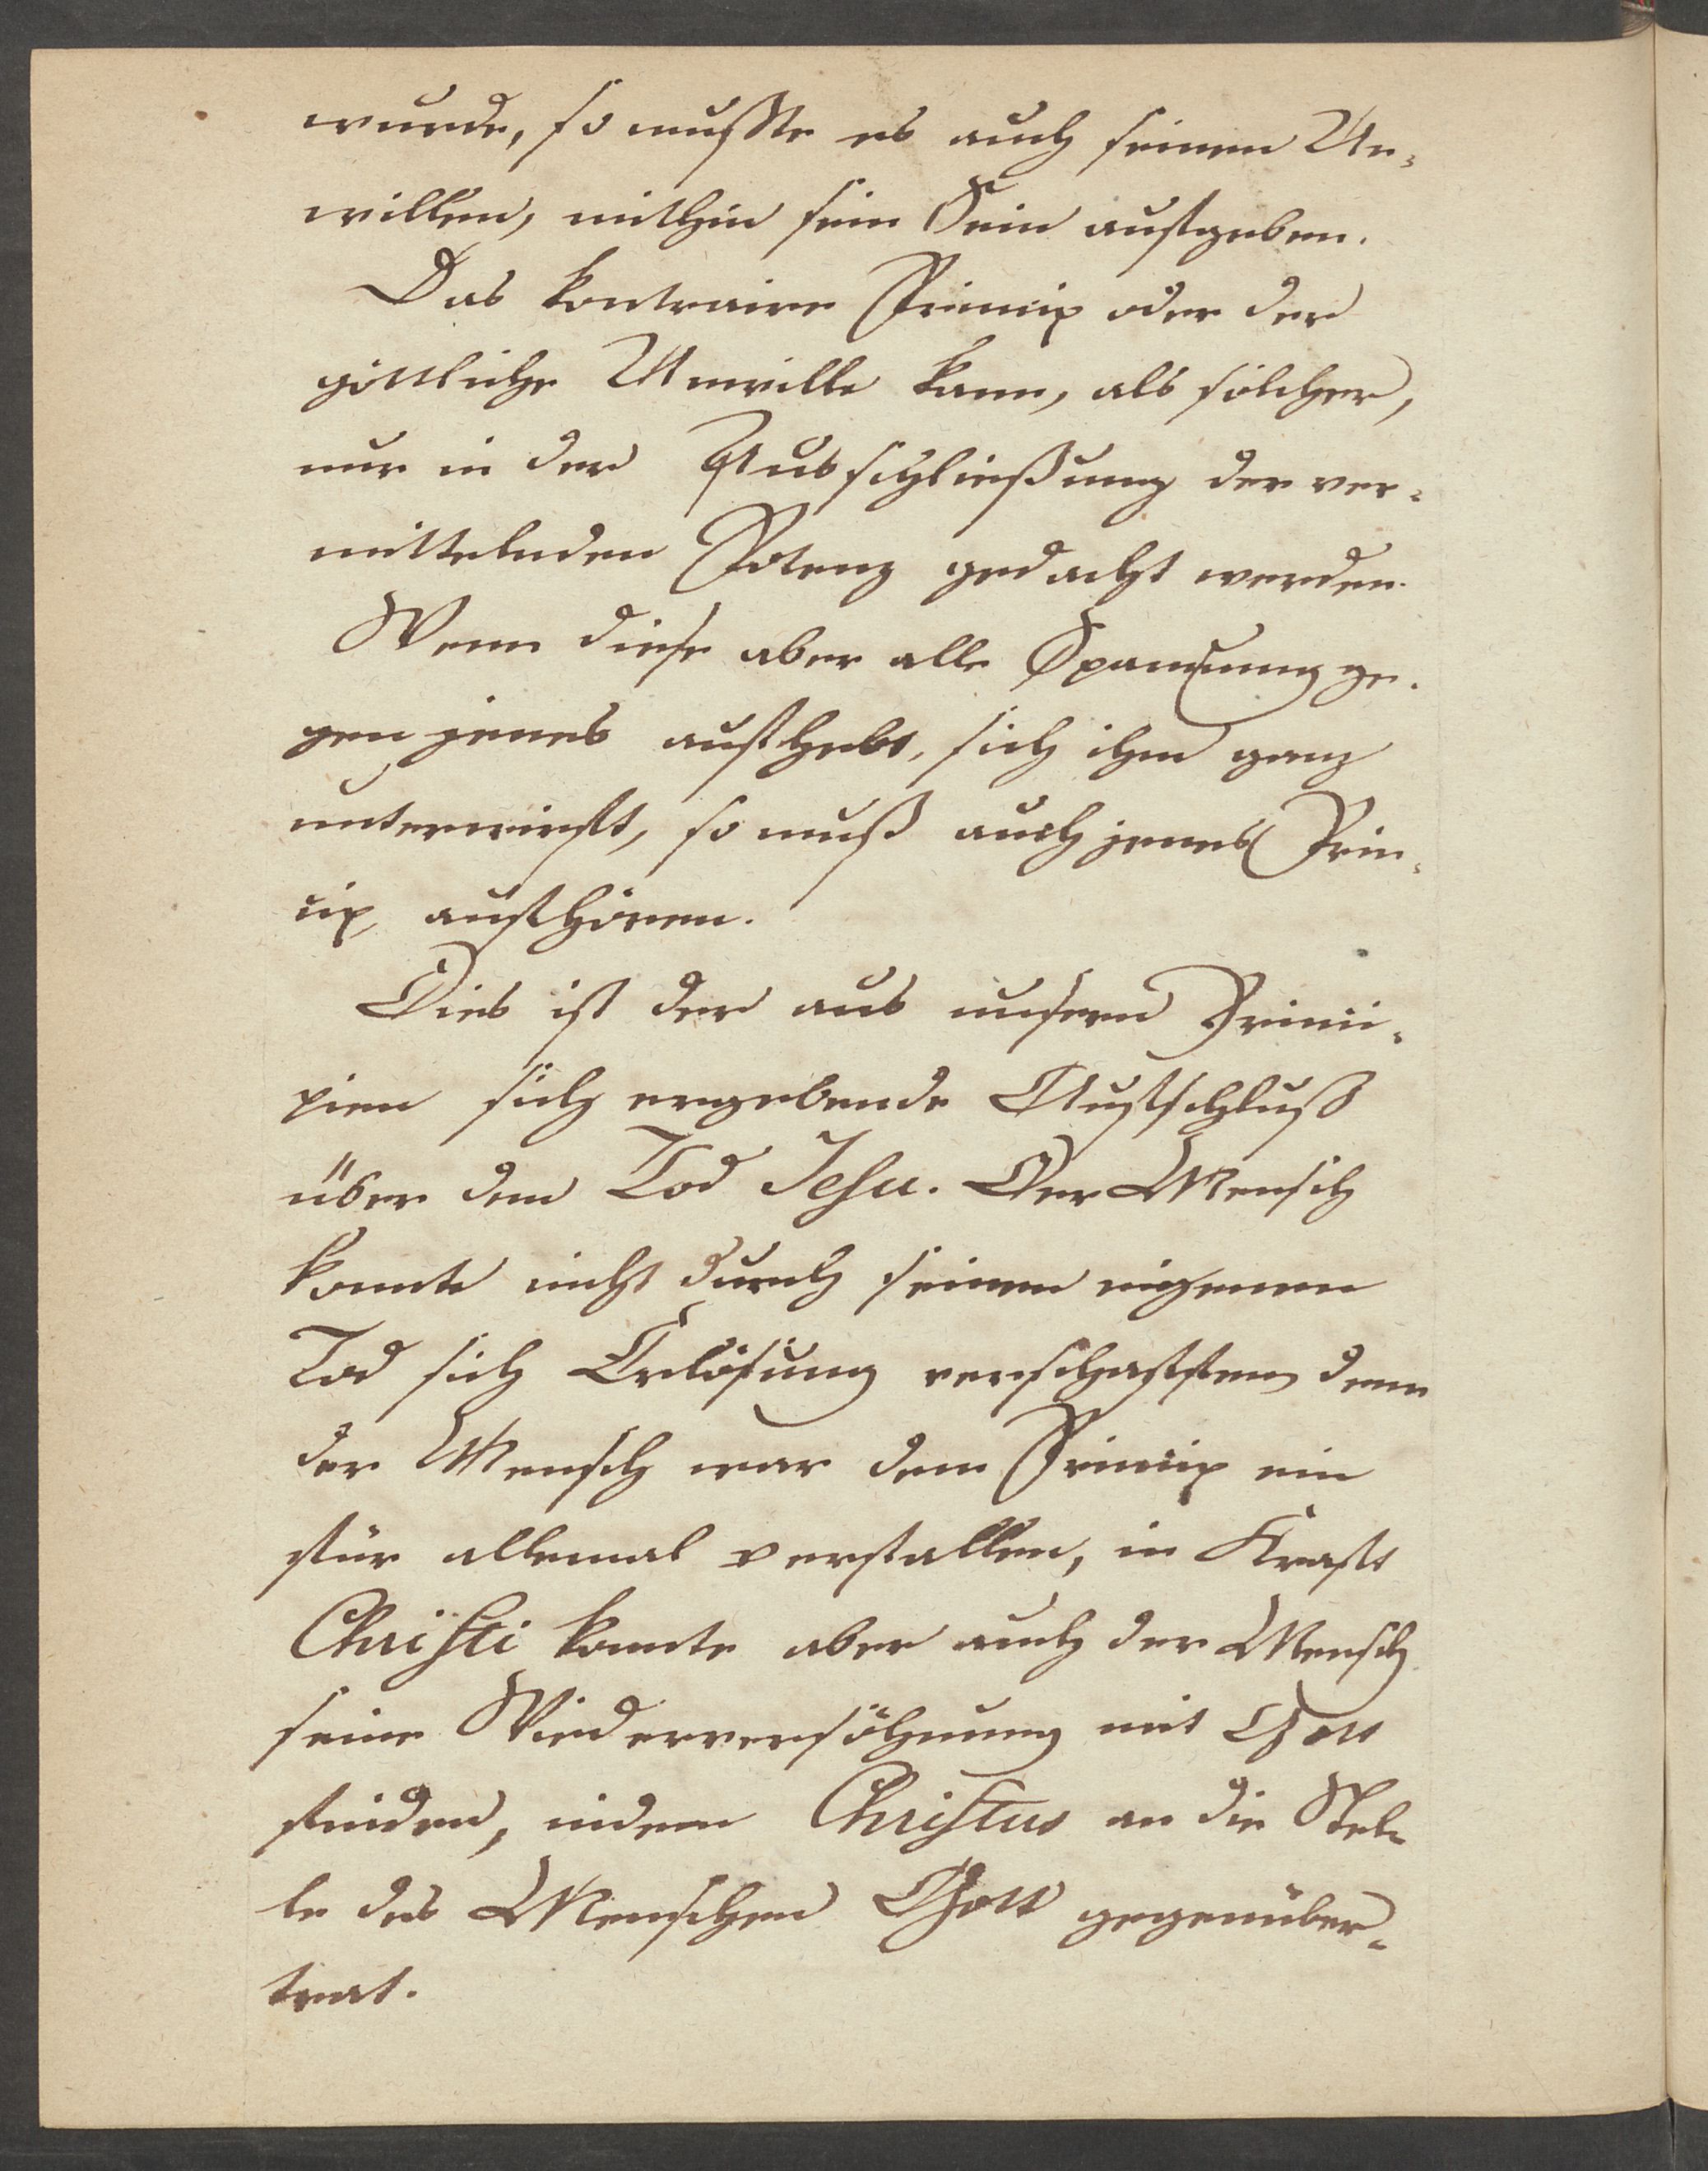 wurde, so mußte es auch seinen Un-
willen, mithin sein Sein aufgeben.
Das kontraire Princip oder der
göttliche Unwille kann, als solcher,
nur in der Ausschließung der ver-
mittelnden Potenz gedacht werden.
Wenn diese aber alle Spannung ge-
gen jenes aufhebt, sich ihm ganz
unterwirft, so muß auch jenes Prin-
cip aufhören.
Dies ist der aus unsern Princi-
pien sich ergebende Aufschluß
über den Tod Jesu. Der Mensch
konnte nicht durch seinen eigenen
Tod sich Erlösung verschaffen denn
der Mensch war dem Princip ein
für allemal verfallen, in Kraft
Christi konnte aber auch der Mensch
seine Wiederversöhnung mit Gott
finden, indem Christus an die Stel-
le des Menschen Gott gegenüber-
trat.